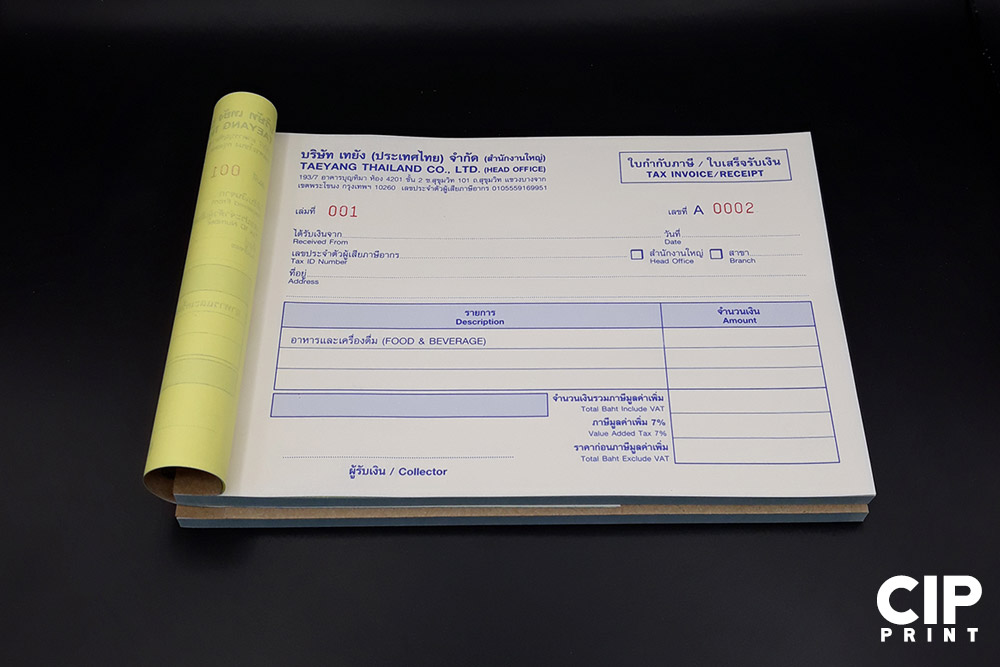 บริษัท เทยัง (ประเทศไทย) จำกัด (สำนักงานใหญ่)
TAEYANG THAILAND CO., LTD. (HEAD OFFICE)
193/7 อาคารบุญทิมา ห้อง 4201 ชั้น 2 ซ.สุขุมวิท 101 ถ.สุขุมวิท แขวงบางจาก
เขตพระโขนง กรุงเทพฯ 10260 เลขประจำตัวผู้เสียภาษีอากร 0105559169951
ใบกำกับภาษี / ใบเสร็จรับเงิน
TAX INVOICE/RECEIPT
เล่มที่ 001
เลขที่ A 0002
ได้รับเงินจาก
Received From
วันที่
Date
เลขประจำตัวผู้เสียภาษีอากร
Tax ID Number
สำนักงานใหญ่
Head Office
สาขา
Branch
ที่อยู่
Address
รายการ
Description
จำนวนเงิน
Amount
อาหารและเครื่องดื่ม (FOOD & BEVERAGE)
จำนวนเงินรวมภาษีมูลค่าเพิ่ม
Total Baht Include VAT
ภาษีมูลค่าเพิ่ม 7%
Value Added Tax 7%
ราคาก่อนภาษีมูลค่าเพิ่ม
Total Baht Exclude VAT
ผู้รับเงิน / Collector
CIP
PRINT